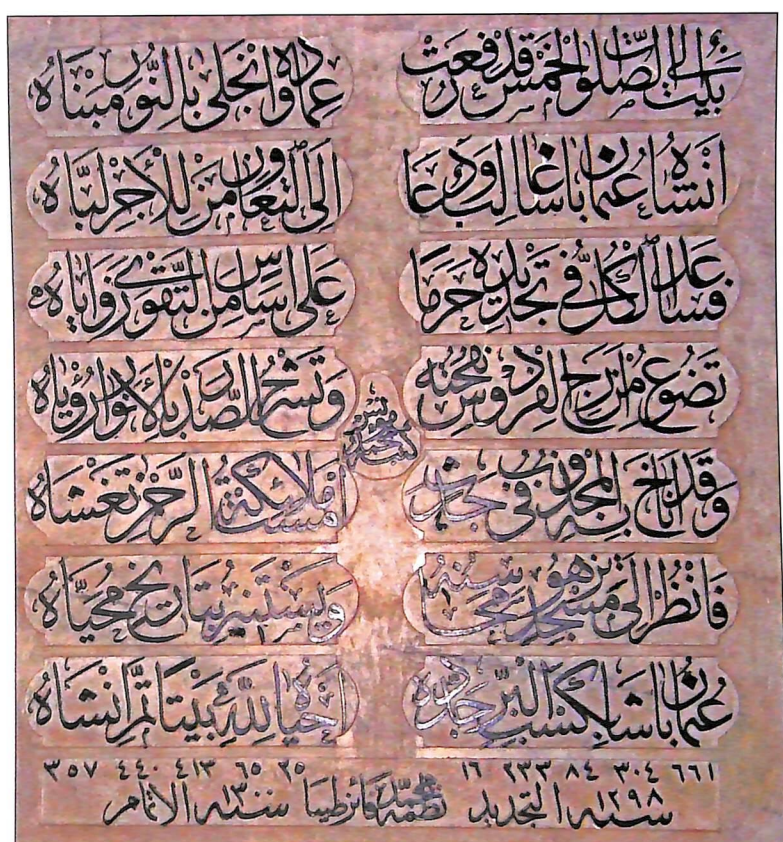 بيت الى الصلوات الخمس قد رفعت عماده وانجلى بالنور مبناه
انشاه عثمان باشا غالب ودعا الى التعاون من للأجر لباه
فساعد الكل في تجديده حرما على اساس من التقوى زواياه
تضوع من ارج الفردوس نفحته وتشرح الصدر بالأنوار رؤياه
كتبه محمد مونس
وقد اناخ به المجذوب في جدث امست ملائكة الرحمن تغشاه
فانظر الى مسجد تزهو محاسنه ويستنير بتاريخ محياه
عثمان باشا بكسب البر جدده احياه لله بيتا تم انشاه
٦٦١ ٣٠٤ ٨٤ ٢٣٣ ١٦ ٢٥ ٦٥ ٤١٣ ٤٤٠ ٣٥٧
سنه ١٢٩٨ التجديد نظمه محمد سنه ١٣٠٠ الاتمام